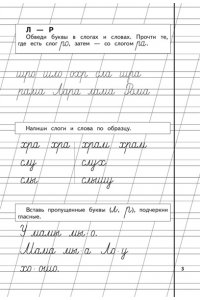 Л — Р
Обведи буквы в слогах и словах. Прочти те,
где есть слог ро, затем — со слогом ра.
шро шло охр сла шра
рама Лара лама Рома
Напиши слоги и слова по образцу.
хра хра храм храм
слу слух
слы слышу
Вставь пропущенные буквы (л, р), подчеркни
гласные.
У мамы мы о.
Мама мы а Ло у
хо ошо.
3